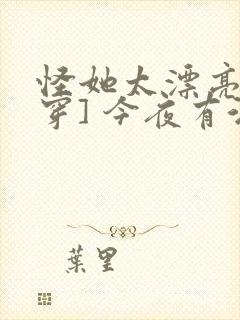 怪她太漂亮
穿] 今夜有
葉里